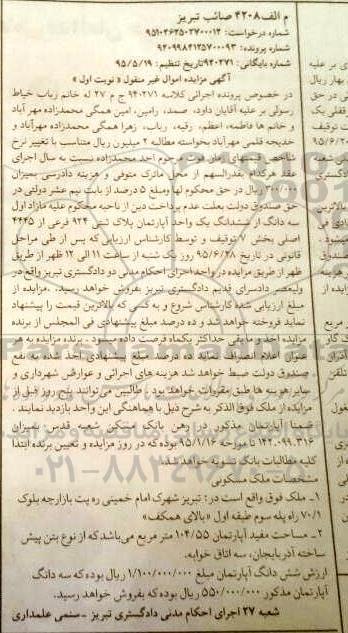 م الف ۴۲۰۸ صائب تبریز
شماره درخواست: ۹۵۱۰۴۶۲۵۰۲۷۰۰۰۱۲
شماره پرونده: ۹۴۰۹۹۸۴۱۲۵۷۰۰۰۹۳
شماره بایگانی: ۹۴۰۲۷۱ تاریخ تنظیم: ۹۵/۵/۱۹
آگهی مزایده اموال غیر منقول « نوبت اول »
در خصوص پرونده اجرائی کلاسه ۹۴۰۲۷۱ ج م ۲۷ له خانم رباب خیاط
رسولی بر علیه آقایان داود، صمد، رامین، امین همگی محمدزاده مهرآباد
و خانم ها فاطمه، اعظم، رقیه، رباب، زهرا همگی محمدزاده مهرآباد و
خدیجه قلمی مهرآباد بخواسته مطالبه ۲ میلیون ریال متناسب با تغییر نرخ
شاخص قیمتهای از ماترک مرحوم احد محمدزاده نسبت به سال اجرای
عقد هرکدام بقدرالسهم از محل ماترک متوفی و هزینه دادرسی بمیزان
۳۰۰/۰۰۰ ریال در حق محکوم لها ومبلغ ۵ درصد از بابت نیم عشر دولتی در
حق صندوق دولت بعلت عدم پرداخت دین از ناحیه محکوم علیه مازاد اول
سه دانگ از ششدانگ یک واحد آپارتمان پلاک ثبتی ۹۲۴ فرعی از ۴۴۴۵
اصلی بخش ۷ توقیف و توسط کارشناس ارزیابی که پس از طی مراحل
قانونی در تاریخ ۹۵/۶/۲۸ روز یک شنبه از ساعت ۱۱ الی ۱۲ ظهر از طریق
ظهر از طریق مزایده در واحد اجرای احکام مدنی دو دادگستری تبریز واقع در
ولیعصر دادسرای قدیم دادگستری تبریز بفروش خواهد رسید. مزایده از
مبلغ ارزیابی شده کارشناس شروع و به کسی که بالاترین قیمت را پیشنهاد
نماید فروخته خواهد شد و ده درصد مبلغ پیشنهادی فی المجلس از برنده
مزایده اخذ و مابقی حداکثر یکماه فرصت داده میشود. برنده مزایده به هر
عنوان اعلام انصراف نماید ده درصد مبلغ پیشنهادی اخذ شده به نفع
صندوق دولت ضبط خواهد شد هزینه های اجرائی و عوارض شهرداری و
سایر هزینه ها طبق مقررات خواهد بود. و طالبین می‌توانند پنج روز قبل از
مزایده از ملک فوق الذکر به شرح ذیل با هماهنگی این واحد بازدید نمایند.
ضمنا آپارتمان مذکور در رهن بانک مسکن شعبه قدس به میزان
۱۴۲.۰۹۹.۳۱۶ تا مورخه ۹۵/۱/۱۶ بوده که در روز مزایده و تعیین برنده ابتدا
کلیه مطالبات بانک تسویه خواهد شد.
مشخصات ملک مسکونی
۱ـ ملک فوق واقع است در: تبریز شهرک امام خمینی ره پت بازارچه بلوک
۷۰/۱ راه پله سوم طبقه اول «بالای همکف»
۲ـ مساحت مفید آپارتمان ۱۰۴/۵۵ متر مربع می‌باشد که از نوع بتن پیش
ساخته آذربایجان، سه اتاق خوابه.
ارزش شش دانگ آپارتمان مبلغ ۱/۱۰۰/۰۰۰/۰۰۰ ریال بوده که سه دانگ
آپارتمان مذکور ۵۵۰/۰۰۰/۰۰۰ ریال بوده که بفروش خواهد رسید.
شعبه ۲۷ اجرای احکام مدنی دادگستری تبریز ـ صنمی علمداری
۰۲۱-۸۸۳۴۹۶۷۰-۵